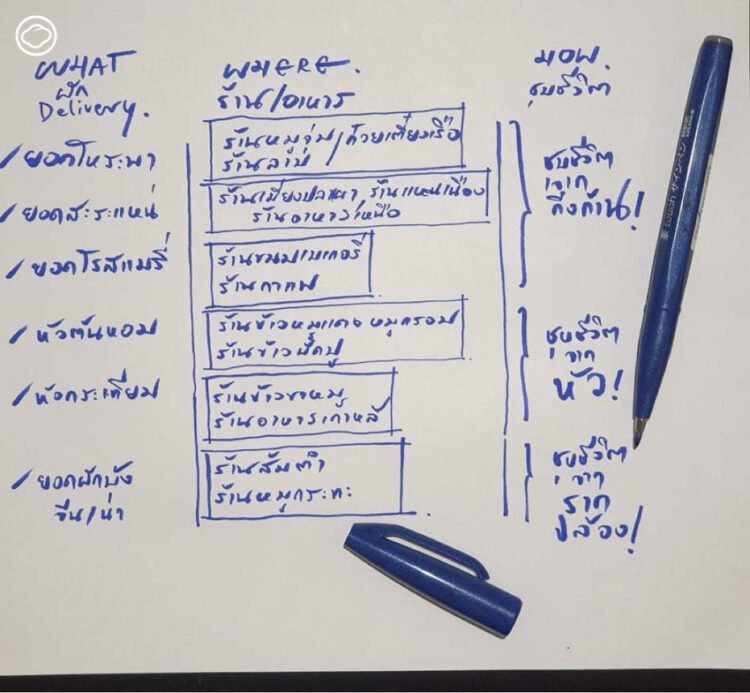 WHAT
ผัก
Delivery.
/ ยอดโหระพา
/ ยอดสะระแหน่
/ ยอดโรสแมรี่
/ หัวต้นหอม
/ หัวกระเทียม
/ ยอดผักบุ้ง
จีน/นา
WHERE.
ร้าน/อาหาร
ร้านหมูจุ่ม/ก๋วยเตี๋ยวเรือ
ร้านลาบ
ร้านเมี่ยงปลาเผา ร้านแหนมเนือง
ร้านอาหารเหนือ
ร้านขนมเบเกอรี่
ร้านกาแฟ
ร้านข้าวหมูแดง หมูกรอบ
ร้านข้าวผัดปู
ร้านข้าวขาหมู
ร้านอาหารเกาหลี
ร้านส้มตำ
ร้านหมูกระทะ
HOW.
ชุบชีวิต
ชุบชีวิต
จาก
กิ่งก้าน!
ชุบชีวิต
จาก
หัว!
ชุบชีวิต
จาก
ราก
ปล้อง!
Touch サインペン